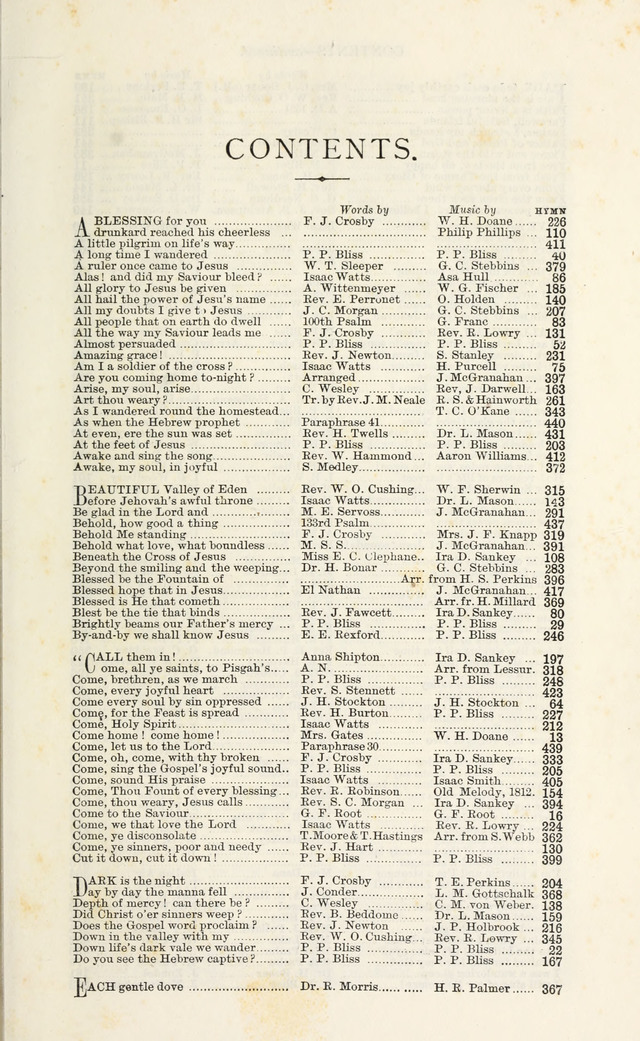 CONTENTS.
Words by Music by HYMN
A BLESSING for you ..................... F. J. Crosby ............ W. H. Doane ...... 226
A drunkard reached his cheerless ... .................................. Philip Phillips ... 110
A little pilgrim on life's way................ .................................. .......................... 411
A long time I wandered ................... P. P. Bliss .............. P. P. Bliss ......... 40
A ruler once came to Jesus ............ W. T. Sleeper ......... G. C. Stebbins ... 379
Alas! and did my Saviour bleed? ...... Isaac Watts............ Asa Hull............. 86
All glory to Jesus be given ............ A. Wittenmeyer ...... W. G. Fischer ... 185
All hail the power of Jesu's name ...... Rev. E. Perronet ...... O. Holden ......... 140
All my doubts I give to Jesus ......... J. C. Morgan ......... G. C. Stebbins ... 207
All people that on earth do dwell ...... 100th Psalm ......... G. Franc ............ 83
All the way my Saviour leads me ...... F. J. Crosby ......... Rev. R. Lowry ... 131
Almost persuaded ........................... P. P. Bliss ............ P. P. Bliss ......... 52
Amazing grace! .............................. Rev. J. Newton......... S. Stanley ......... 231
Am I a soldier of the cross? ............ Isaac Watts ......... H. Purcell ......... 75
Are you coming home to-night? ......... Arranged............... J. McGranahan ... 397
Arise, my soul, arise........................ C. Wesley ............ Rev, J. Darwall... 163
Art thou weary? .............................. Tr. by Rev. J. M. Neale R. S. & Hainworth 261
As I wandered round the homestead... .............................. T. C. O'Kane ...... 343
As when the Hebrew prophet ............ Paraphrase 41......... .......................... 440
At even, ere the sun was set ............ Rev. H. Twells ......... Dr. L. Mason...... 431
At the feet of Jesus ........................ P. P. Bliss ............ P. P. Bliss ......... 203
Awake and sing the song.................. Rev. W. Hammond... Aaron Williams... 412
Awake, my soul, in joyful ............... S. Medley............... .......................... 372
BEAUTIFUL Valley of Eden ......... Rev. W. O. Cushing... W. F. Sherwin ... 315
Before Jehovah's awful throne ......... Isaac Watts............ Dr. L. Mason...... 143
Be glad in the Lord and .................. M. E. Servoss......... J. McGranahan... 291
Behold, how good a thing ............... 133rd Psalm............ .......................... 437
Behold Me standing ........................ F. J. Crosby ......... Mrs. J. F. Knapp 319
Behold what love, what boundless ...... M. S. S. ............... J. McGranahan... 391
Beneath the Cross of Jesus ............ Miss E. C. Clephane.. Ira D. Sankey ... 108
Beyond the smiling and the weeping... Dr. H. Bonar ......... G. C. Stebbins ... 283
Blessed be the Fountain of ............... .................. Arr. from H. S. Perkins 396
Blessed hope that in Jesus............... El Nathan ............ J. McGranahan... 417
Blessed is He that cometh............... .............................. Arr. fr. H. Millard 369
Blest be the tie that binds ............... Rev. J. Fawcett...... Ira D. Sankey...... 80
Brightly beams our Father's mercy ... P. P. Bliss ............ P. P. Bliss ......... 29
By-and-by we shall know Jesus ......... E. E. Rexford......... P. P. Bliss ......... 246
"CALL them in! ........................... Anna Shipton......... Ira D. Sankey ... 197
Come, all ye saints, to Pisgah's..... A. N. .................. Arr. from Lessur. 318
Come, brethren, as we march ......... P. P. Bliss ............ P. P. Bliss ......... 248
Come, every joyful heart ............... Rev. S. Stennett ...... .......................... 423
Come every soul by sin oppressed ...... J. H. Stockton ......... J. H. Stockton ... 64
Come, for the Feast is spread ......... Rev. H. Burton......... P. P. Bliss ......... 227
Come, Holy Spirit........................... Isaac Watts ......... .......................... 212
Come home! come home! ............... Mrs. Gates ............ W. H. Doane ...... 13
Come, let us to the Lord.................. Paraphrase 30......... .......................... 439
Come, oh, come, with thy broken ...... F. J. Crosby ......... Ira D. Sankey...... 333
Come, sing the Gospel's joyful sound.. P. P. Bliss ............ P. P. Bliss ......... 205
Come, sound His praise .................. Isaac Watts ......... Isaac Smith......... 405
Come, Thou Fount of every blessing... Rev. R. Robinson...... Old Melody, 1812. 154
Come, thou weary, Jesus calls ......... Rev. S. C. Morgan ... Ira D. Sankey ... 394
Come to the Saviour........................ G. F. Root ............ G. F. Root ......... 16
Come, we that love the Lord ......... Isaac Watts ......... Rev. R. Lowry ... 224
Come, ye disconsolate ..................... T. Moore & T. Hastings Arr. from S. Webb 362
Come, ye sinners, poor and needy ...... Rev. J. Hart ......... .......................... 130
Cut it down, cut it down! ............... P. P. Bliss ............ P. P. Bliss ......... 399
DARK is the night ..................... F. J. Crosby ......... T. E. Perkins...... 204
Day by day the manna fell ......... J. Conder............... L. M. Gottschalk 368
Depth of mercy! can there be? ......... C. Wesley ............ C. M. von Weber. 138
Did Christ o'er sinners weep? ......... Rev. B. Beddome ... Dr. L. Mason...... 159
Does the Gospel word proclaim? ...... Rev. J. Newton ...... J. P. Holbrook ... 216
Down in the valley with my ............ Rev. W. O. Cushing... Rev. R. Lowry ... 345
Down life's dark vale we wander......... P. P. Bliss ............ P. P. Bliss ......... 22
Do you see the Hebrew captive?......... P. P. Bliss ............ P. P. Bliss ......... 167
EACH gentle dove ........................... Dr. R. Morris............ H. R. Palmer ...... 367